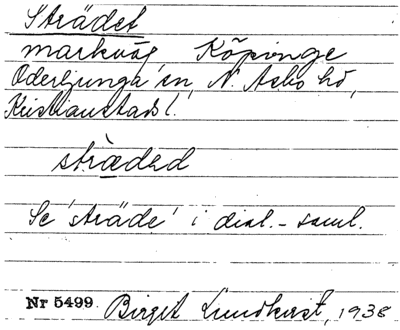 Strädet
markväg Köpinge
Oderljunga sn, N. Åsbo hd,
Kristianstads l.
strädəd
Se 'sträde' i dial.-saml.
Nr 5499. Birgit Lundkvist, 1938